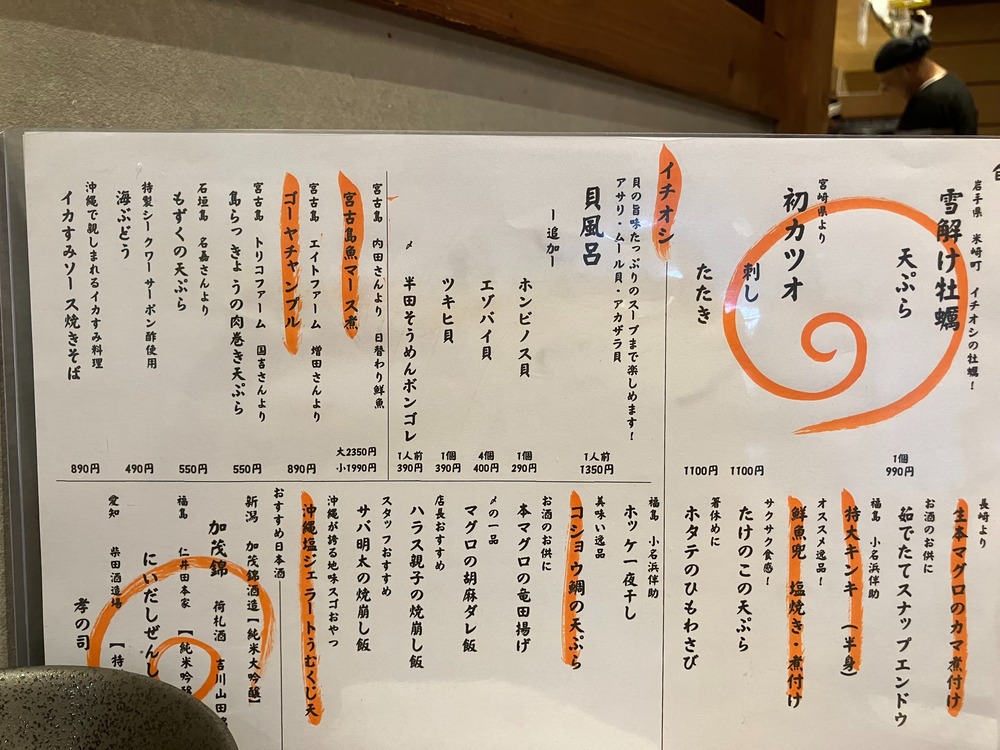 岩手県 米崎町 イチオシの牡蠣!
雪解け牡蠣
天ぷら
1個
990円
宮崎県より
初カツオ
刺し
1100円
たたき
1100円
イチオシ
貝の旨味たっぷりのスープまで楽しめます!
アサリ・ムール貝・アカザラ貝
貝風呂
1人前
1350円
ー追加ー
ホンビノス貝
1個
290円
エゾバイ貝
4個
400円
ツキヒ貝
1個
390円
〆
半田そうめんボンゴレ
1人前
390円
宮古島 内田さんより 日替わり鮮魚
宮古島魚マース煮
大2350円
小1990円
宮古島 エイトファーム 増田さんより
ゴーヤチャンプル
890円
宮古島 トリコファーム 国吉さんより
島らっきょうの肉巻き天ぷら
550円
石垣島 名嘉さんより
もずくの天ぷら
550円
特製シークワーサーポン酢使用
海ぶどう
490円
沖縄で親しまれるイカすみ料理
イカすみソース焼きそば
890円
長崎より
生本マグロのカマ煮付け
お酒のお供に
茹でたてスナップエンドウ
福島 小名浜伴助
特大キンキ (半身)
オススメ逸品!
鮮魚兜 塩焼き・煮付け
サクサク食感!
たけのこの天ぷら
箸休めに
ホタテのひもわさび
福島 小名浜伴助
ホッケ一夜干し
美味い逸品
コショウ鯛の天ぷら
お酒のお供に
本マグロの竜田揚げ
〆の一品
マグロの胡麻ダレ飯
店長おすすめ
ハラス親子の焼崩し飯
スタッフおすすめ
サバ明太の焼崩し飯
沖縄が誇る地味スゴおやつ
沖縄塩ジェラートうむくじ天
おすすめ日本酒
新潟 加茂錦酒造【純米大吟醸】
加茂錦 荷札酒 吉川山田
福島 仁井田本家 【純米吟醸
にいだしぜんし
愛知 柴田酒造場 【特
孝の司